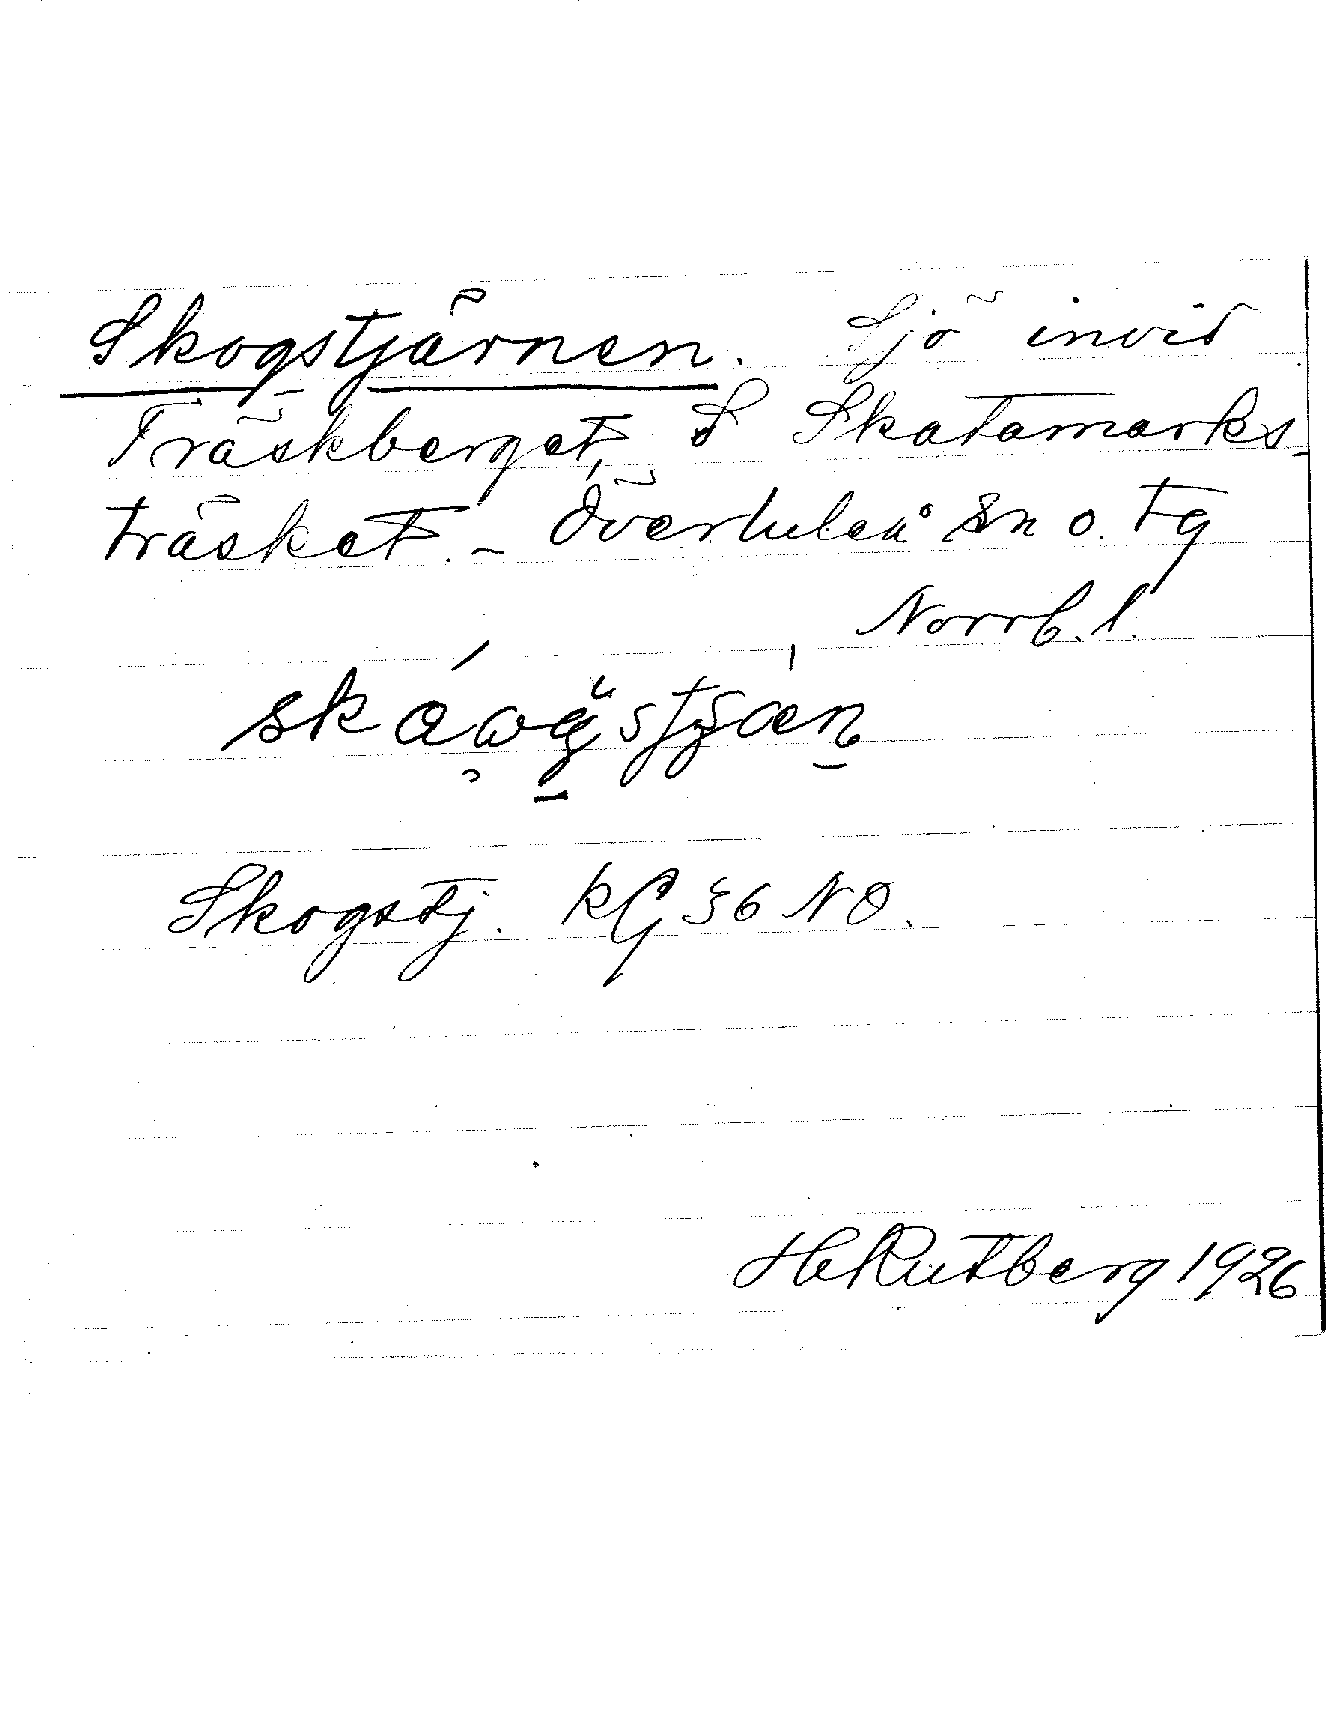 Skogstjärnen. Sjö invid
Träskberget, S Skatamarks-
träsket. - Överluleå sn o. tg
Norrb. l.
Skogstj. kG 36 NO.
H Rutberg 1926